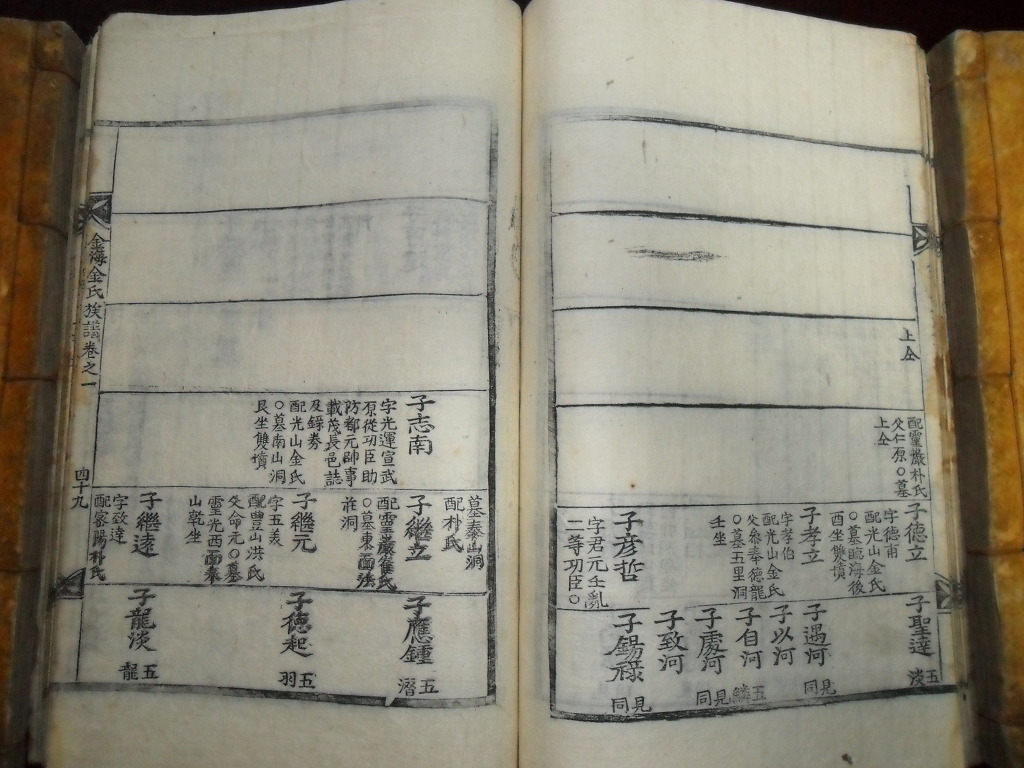 上仝
配靈巖朴氏
父仁原○墓
上仝
子德立
字德甫
配光山金氏
○墓臨海後
酉坐雙墳
子孝立
字孝伯
配光山金氏
父參奉德龍
○墓五里洞
壬坐
子彦哲
字君元壬亂
二等功臣○
子聖達
五
淡
子遇河
見
同
子以河
子自河
五
鱗
子處河
見
同
子致河
子錫祿
見
同
子志南
字光運宣武
原從功臣助
防都元帥事
載茂長邑誌
及錄券
配光山金氏
○墓南山洞
艮坐雙墳
墓泰山洞
配朴氏
子繼立
配靈巖崔氏
○墓東面法
莊洞
子繼元
字五美
配豊山洪氏
父命元○墓
靈光西面奉
山乾坐
子繼遠
字致達
配密陽朴氏
子應鍾
五
潛
子德起
五
羽
子龍淡
五
龍
金海金氏族譜卷之一
四十九